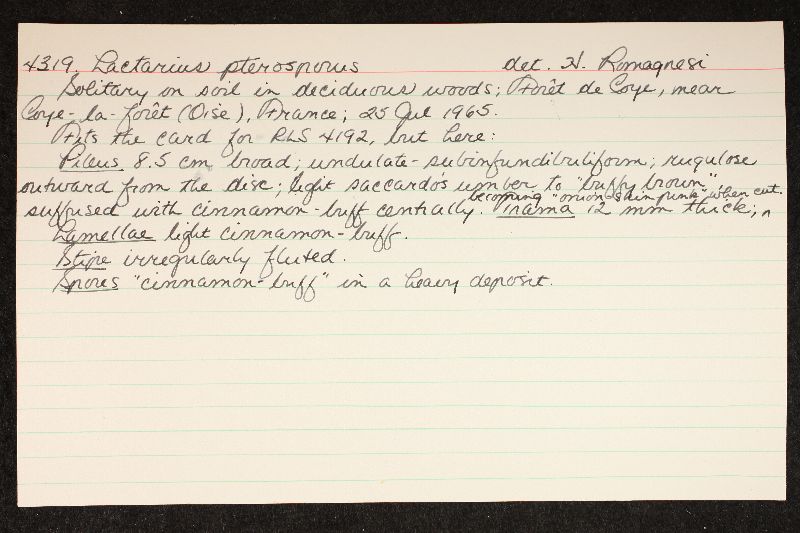 4319. Lactarius pterosporus det. H. Romagnesi
Solitary on soil in deciduous woods; Forêt de Coye, near
Coye-la-forêt (Oise), France; 25 Jul 1965.
Fits the card for RLS 4192, but here:
Pileus 8.5 cm broad; undulate-subinfundibuliform; rugulose
outward from the disc; light saccardo's umber to "buffy brown"
suffused with cinnamon-buff centrally. Trama 12 mm thick; ^ becoming "onion-skin pink" when cut.
Lamellae light cinnamon-buff.
Stipe irregularly fluted.
Spores "cinnamon-buff" in a heavy deposit.